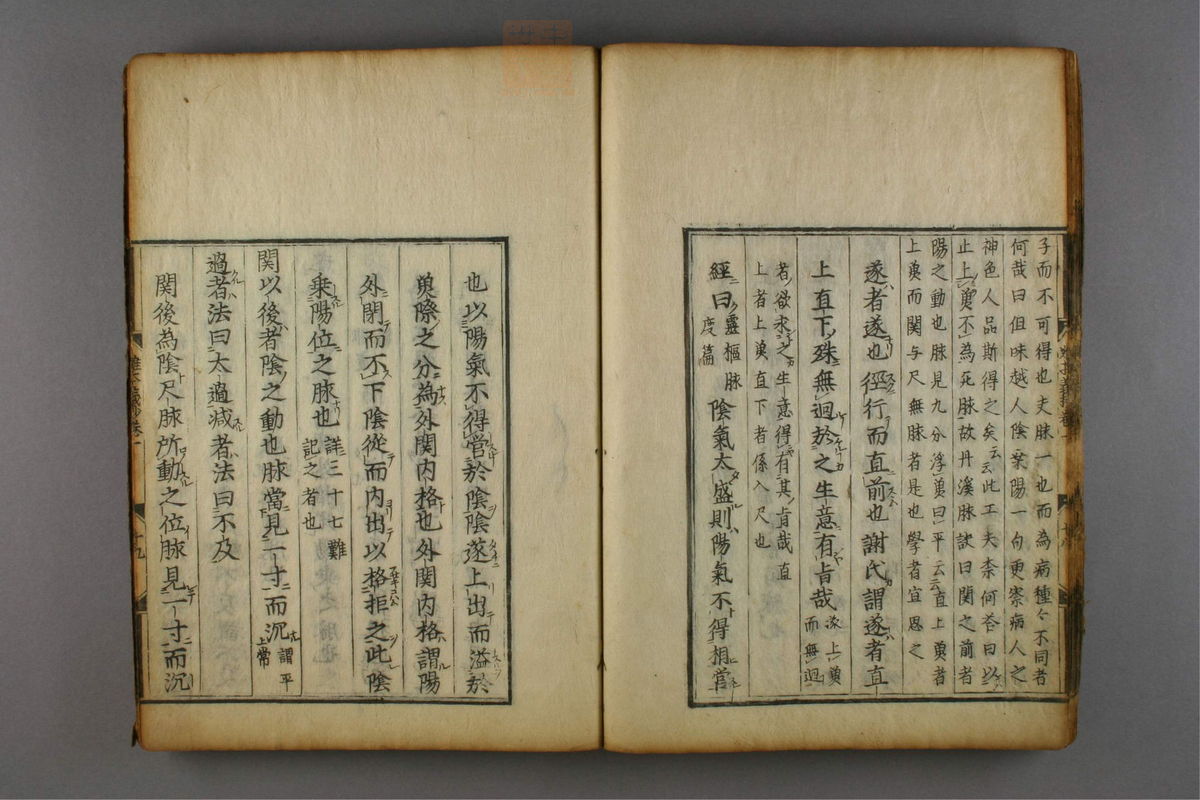 子而不可得也夫脉一也而為病種々不同者
何哉曰但味越人陰乗陽一句更察病人之
神色人品斯得之矣云云此工夫柰何荅曰以
止上奠不為死脉故丹溪脉訣曰関之前者
陽之動也脉見九分浮奠曰平云云直上奠者
上奠而関与尺無脉者是也學者宜思之
遂者遂也徑行而直前也謝氏謂遂者直
上直下殊無迴於之生意有㫖哉遂上奠而無迴
者欲求之生意得有其㫖哉直
上者上奠直下者係入尺也
經曰靈樞脉度篇陰氣太盛則陽氣不得相営
也以陽氣不得営於陰陰遂上出而溢於
奠際之分為外関内格也外関内格謂陽
外閉而不下陰從而内出以格拒之此陰
乗陽位之脉也詳三十七難記之者也
関以後者陰之動也脉當見一寸而沉謂平上常
過者法曰太過减者法曰不及
関後為陰尺脉所動之位脉見一寸而沉